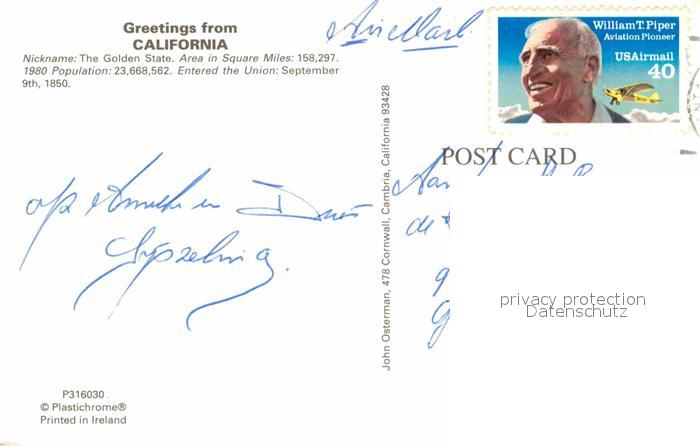 Greetings from
CALIFORNIA
Nickname: The Golden State. Area in Square Miles: 158,297.
1980 Population: 23,668,562. Entered the Union: September
9th, 1850.
Air Mail.
William T. Piper
Aviation Pioneer
USAirmail
40
POST CARD
John Osterman, 478 Cornwall, Cambria, California 93428
de
privacy protection
Datenschutz
P316030
© Plastichrome®
Printed in Ireland